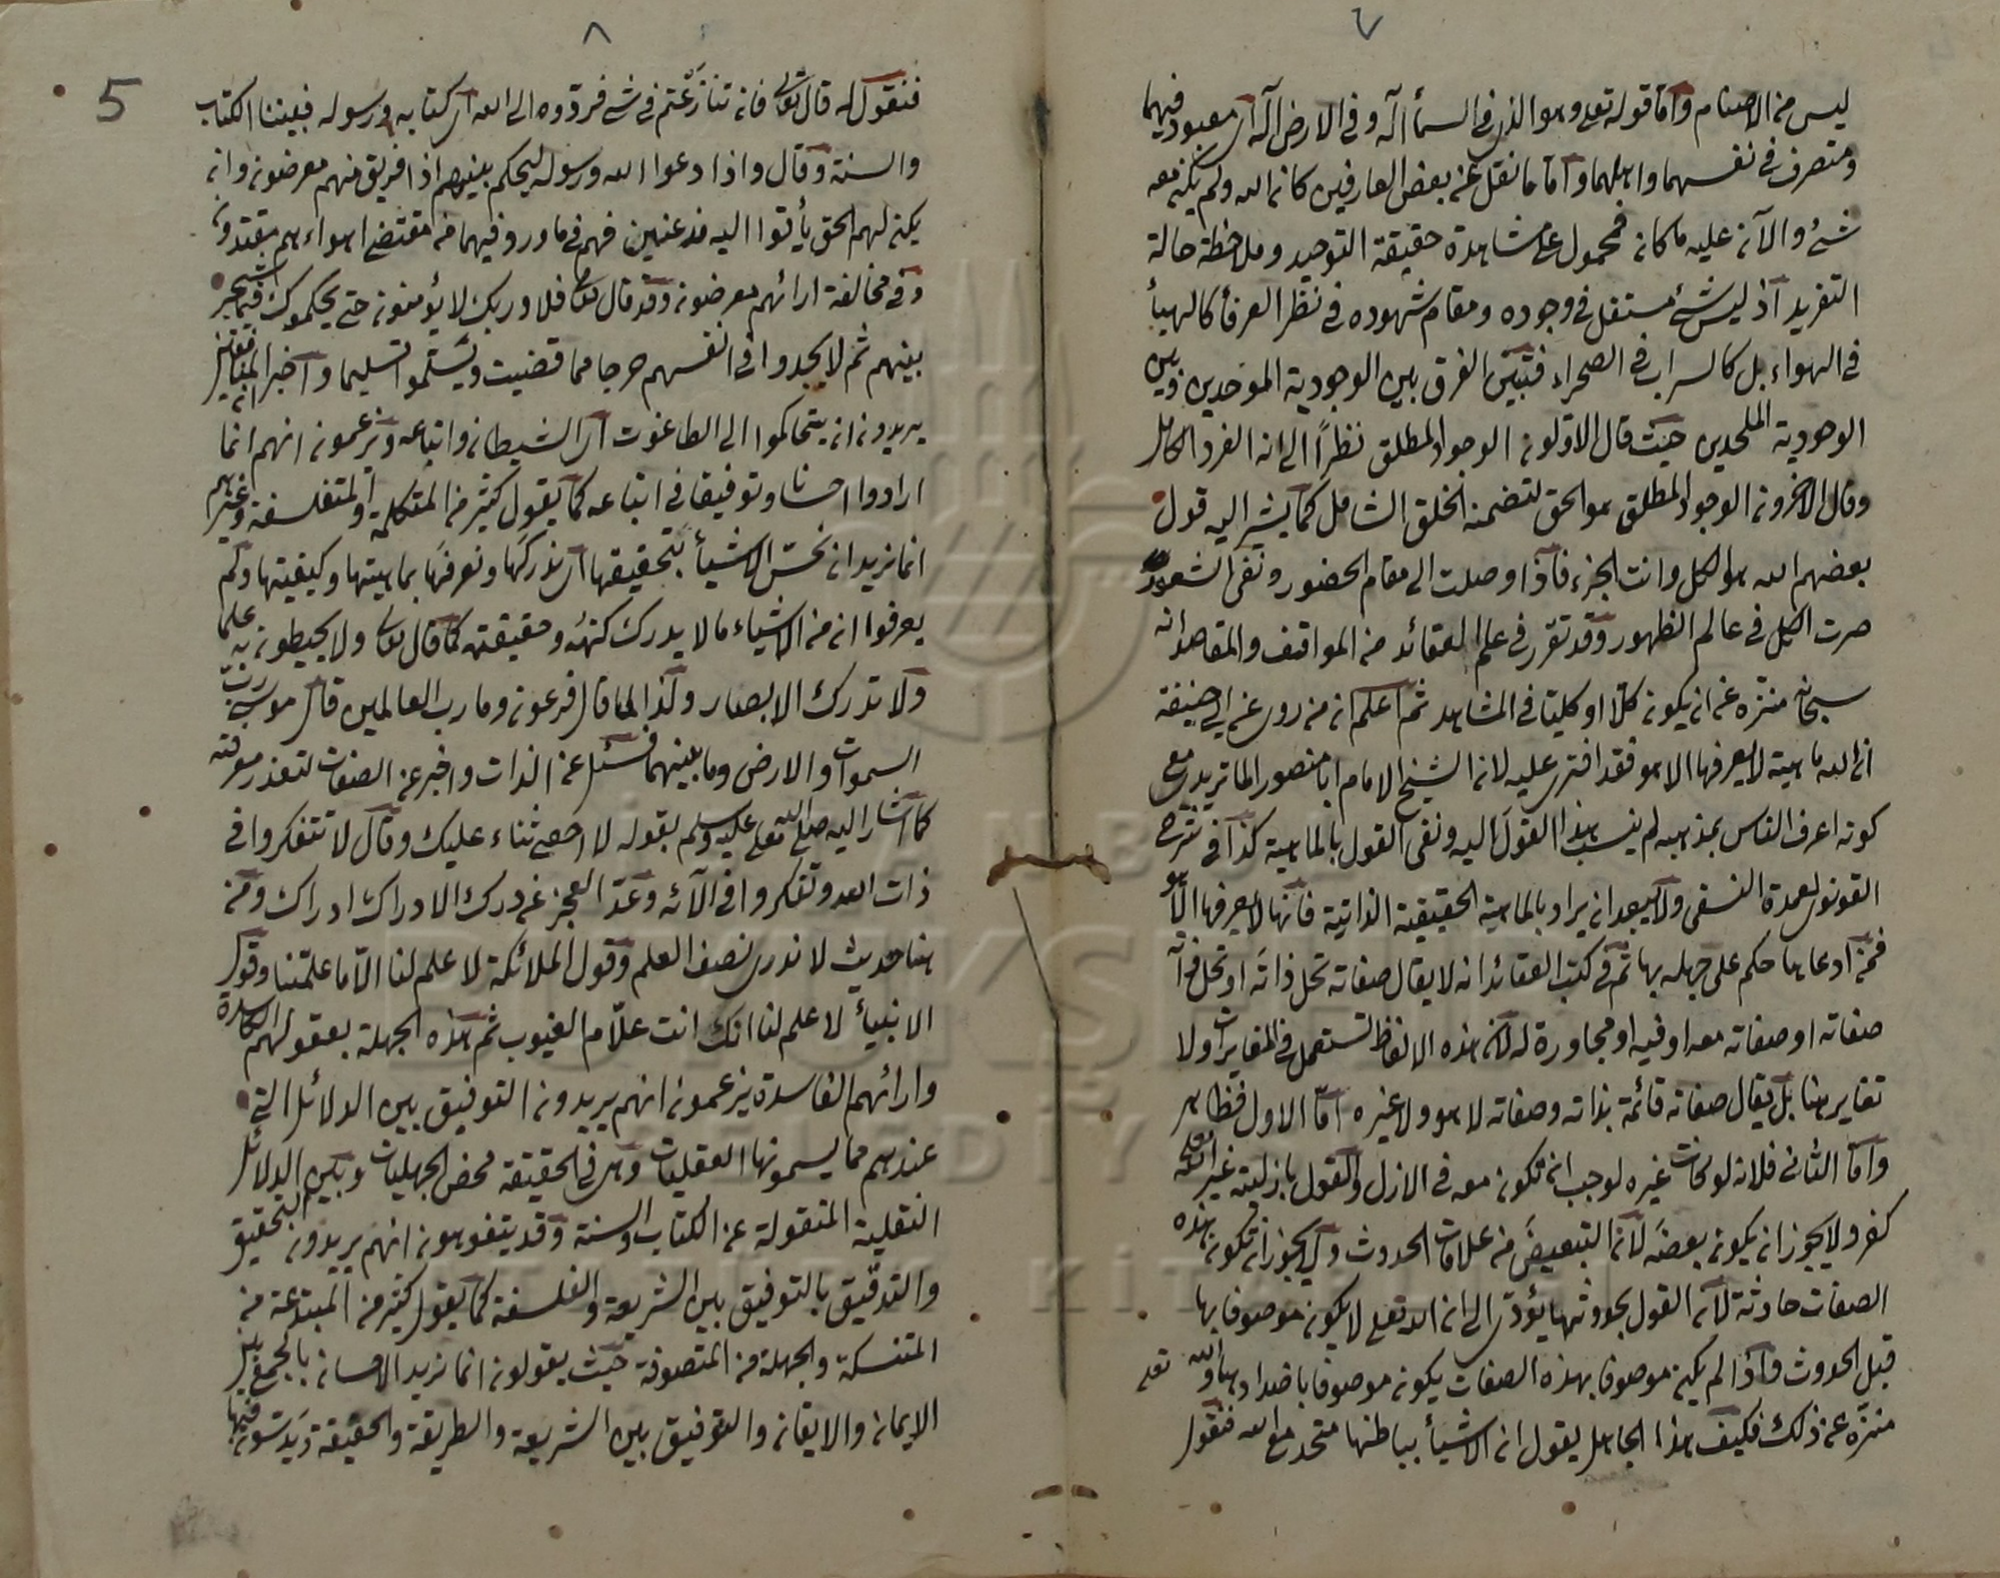 ٧
ليس من الاصنام واما قوله تعلى وهو الذى فى السمأ اله وفى الارض اله اى معبود فيهما
ومتصرف فى نفسهما واهلهما واما ما نقل عن بعض العارفين كان الله ولم يكن معه
شئ والآن عليه ما كان فمحمول على مشاهدة حقيقة التوحيد وملاحظة حالة
التفريد اذ ليس شئ مستقل فى وجوده ومقام شهوده فى نظر العرفأ كالهبأ
فى الهواء بل كالسراب فى الصحراء فتبين الفرق بين الوجودية الموحدين وبين
الوجودية الملحدين حيث قال الاولون الوجود المطلق نظرًا الى انه الفرد الكامل
وقال الآخرون الوجود المطلق هو الحق لتضمنه الخلق الشامل كما يشير اليه قول
بعضهم الله هو الكل وانت الجزء فاذا وصلت الى مقام الحضور ونفى الشعور
صرت الكل فى عالم الظهور وقد تقرر فى علم العقائد من المواقف والمقاصد انه
سبحانه منزه عن ان يكون كلا او كليا فى المشاهد ثم اعلم ان من روى عن ابى حنيفة
ان لله ماهية لا يعرفها الا هو فقد افترى عليه لان الشيخ الامام ابا منصور الماتريدى مع
كونه اعرف الناس بمذهبه لم ينسب هذا القول اليه ونفى القول بالماهية كذا فى شرح
القونوى لعمدة النسفى ولا يبعد ان يراد بالماهية الحقيقة الذاتية فانها لا يعرفها الا هو
فمن ادعاها حكم على جهله بها ثم فى كتب العقائد انه لا يقال صفاته تحل ذاته او تحل ذاته
صفاته او صفاته معه او فيه او مجاورة له لان هذه الالفاظ تستعمل فى المتغايرات ولا
تغاير هنا بل يقال صفاته قائمة بذاته وصفاته لا هو ولا غيره اما الاول فظاهر
واما الثانى فلانه لو كانت غيره لوجب ان تكون معه فى الازل والقول بازلية غير الله تعلى
كفر ولا يجوز ان يكون بعضه لان التبعيض من علامات الحدوث ولا يجوز ان تكون هذه
الصفات حادثة لان القول بحدوثها يؤدى الى ان الله تعلى لا يكون موصوفا بها
قبل الحدوث فاذا لم يكن موصوفا بهذه الصفات يكون موصوفا باضدادها والله تعلى
منزه عن ذلك فكيف هذا الجاهل يقول ان الاشيأ بباطنها متحد مع الله فنقول
٨
5
فنقول له قال تعالى فان تنازعتم فى شئ فردوه الى الله اى كتابه ورسوله فبيننا الكتاب
والسنة وقال واذا دعوا الى الله ورسوله ليحكم بينهم اذا فريق منهم معرضون وان
يكن لهم الحق يأتوا اليه مذعنين فهم فى ما ورد فيهما من مقتضى اهواءهم يقتدون
وفى مخالفة ارائهم معرضون وقد قال تعالى فلا وربك لا يؤمنون حتى يحكموك فيما شجر
بينهم ثم لا يجدوا فى انفسهم حرجا مما قضيت ويسلموا تسليما واخبر المنافقين انهم
يريدون ان يتحاكموا الى الطاغوت اى الشيطان واتباعه ويزعمون انهم انما
ارادوا احسانا وتوفيقا فى اتباعه كما يقول كثير من المتكلمة والمتفلسفة وغيرهم
انما نريد ان نحس الاشيأ بتحقيقها اى ندركها ونعرفها بماهيتها وكيفيتها ولم
يعرفوا ان من الاشياء ما لا يدرك كنهه وحقيقته كما قال تعالى ولا يحيطون به علما
ولا تدرك الابصار ولذا لما قال فرعون وما رب العالمين قال موسى رب
السموات والارض وما بينهما فسئل عن الذات واخبر عن الصفات لتعذر معرفته
كما اشار اليه صلى الله تعلى عليه وسلم بقوله لا احصى ثناء عليك وقال لا تتفكروا فى
ذات الله وتفكروا فى الآئه وعد العجز عن درك الادراك ادراك ومن
هنا حديث لا ندرى نصف العلم وقول الملائكة لا علم لنا الا ما علمتنا وقول
الانبيأ لا علم لنا انك انت علام الغيوب ثم هذه الجهلة بعقولهم الكاسدة
وارائهم الفاسدة يزعمون انهم يريدون التوفيق بين الدلائل التى
عندهم مما يسمونها العقليات وهى فى الحقيقة محض الجهليات وبين الدلائل
النقلية المنقولة عن الكتاب والسنة وقد يتفوهون انهم يريدون التحقيق
والتدقيق بالتوفيق بين الشريعة والفلسفة كما يقول كثير من المبتدعة من
المتنسكة والجهلة من المتصوفة حيث يقولون انما نريد الاحسان بالجمع بين
الايمان والايقان والتوفيق بين الشريعة والطريقة والحقيقة ويدسون فيها